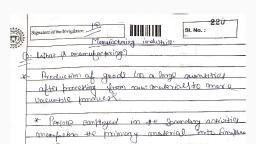 Signature of the Invigilator
Sl. No.: 220
Manufacturing industries
Q. What is manufacturing?
* Production of goods in a large quantities
after processing from raw materials to more
valuable product
* People employed in the secondary activities
the primary material into finished